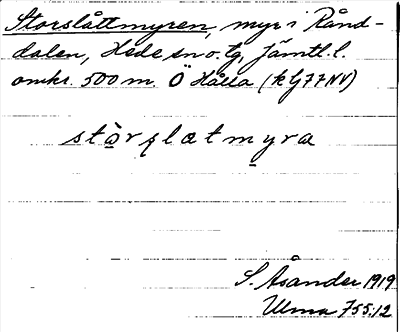 Storslåttmyren, myr i Rånd-
dalen, Hede sn o. tg, Jämtl. l.
omkr. 500 m Ö Hålla (kbj 77 NV)
stòrșlætmyra
S. Åsander 1919
Ulma 755:12